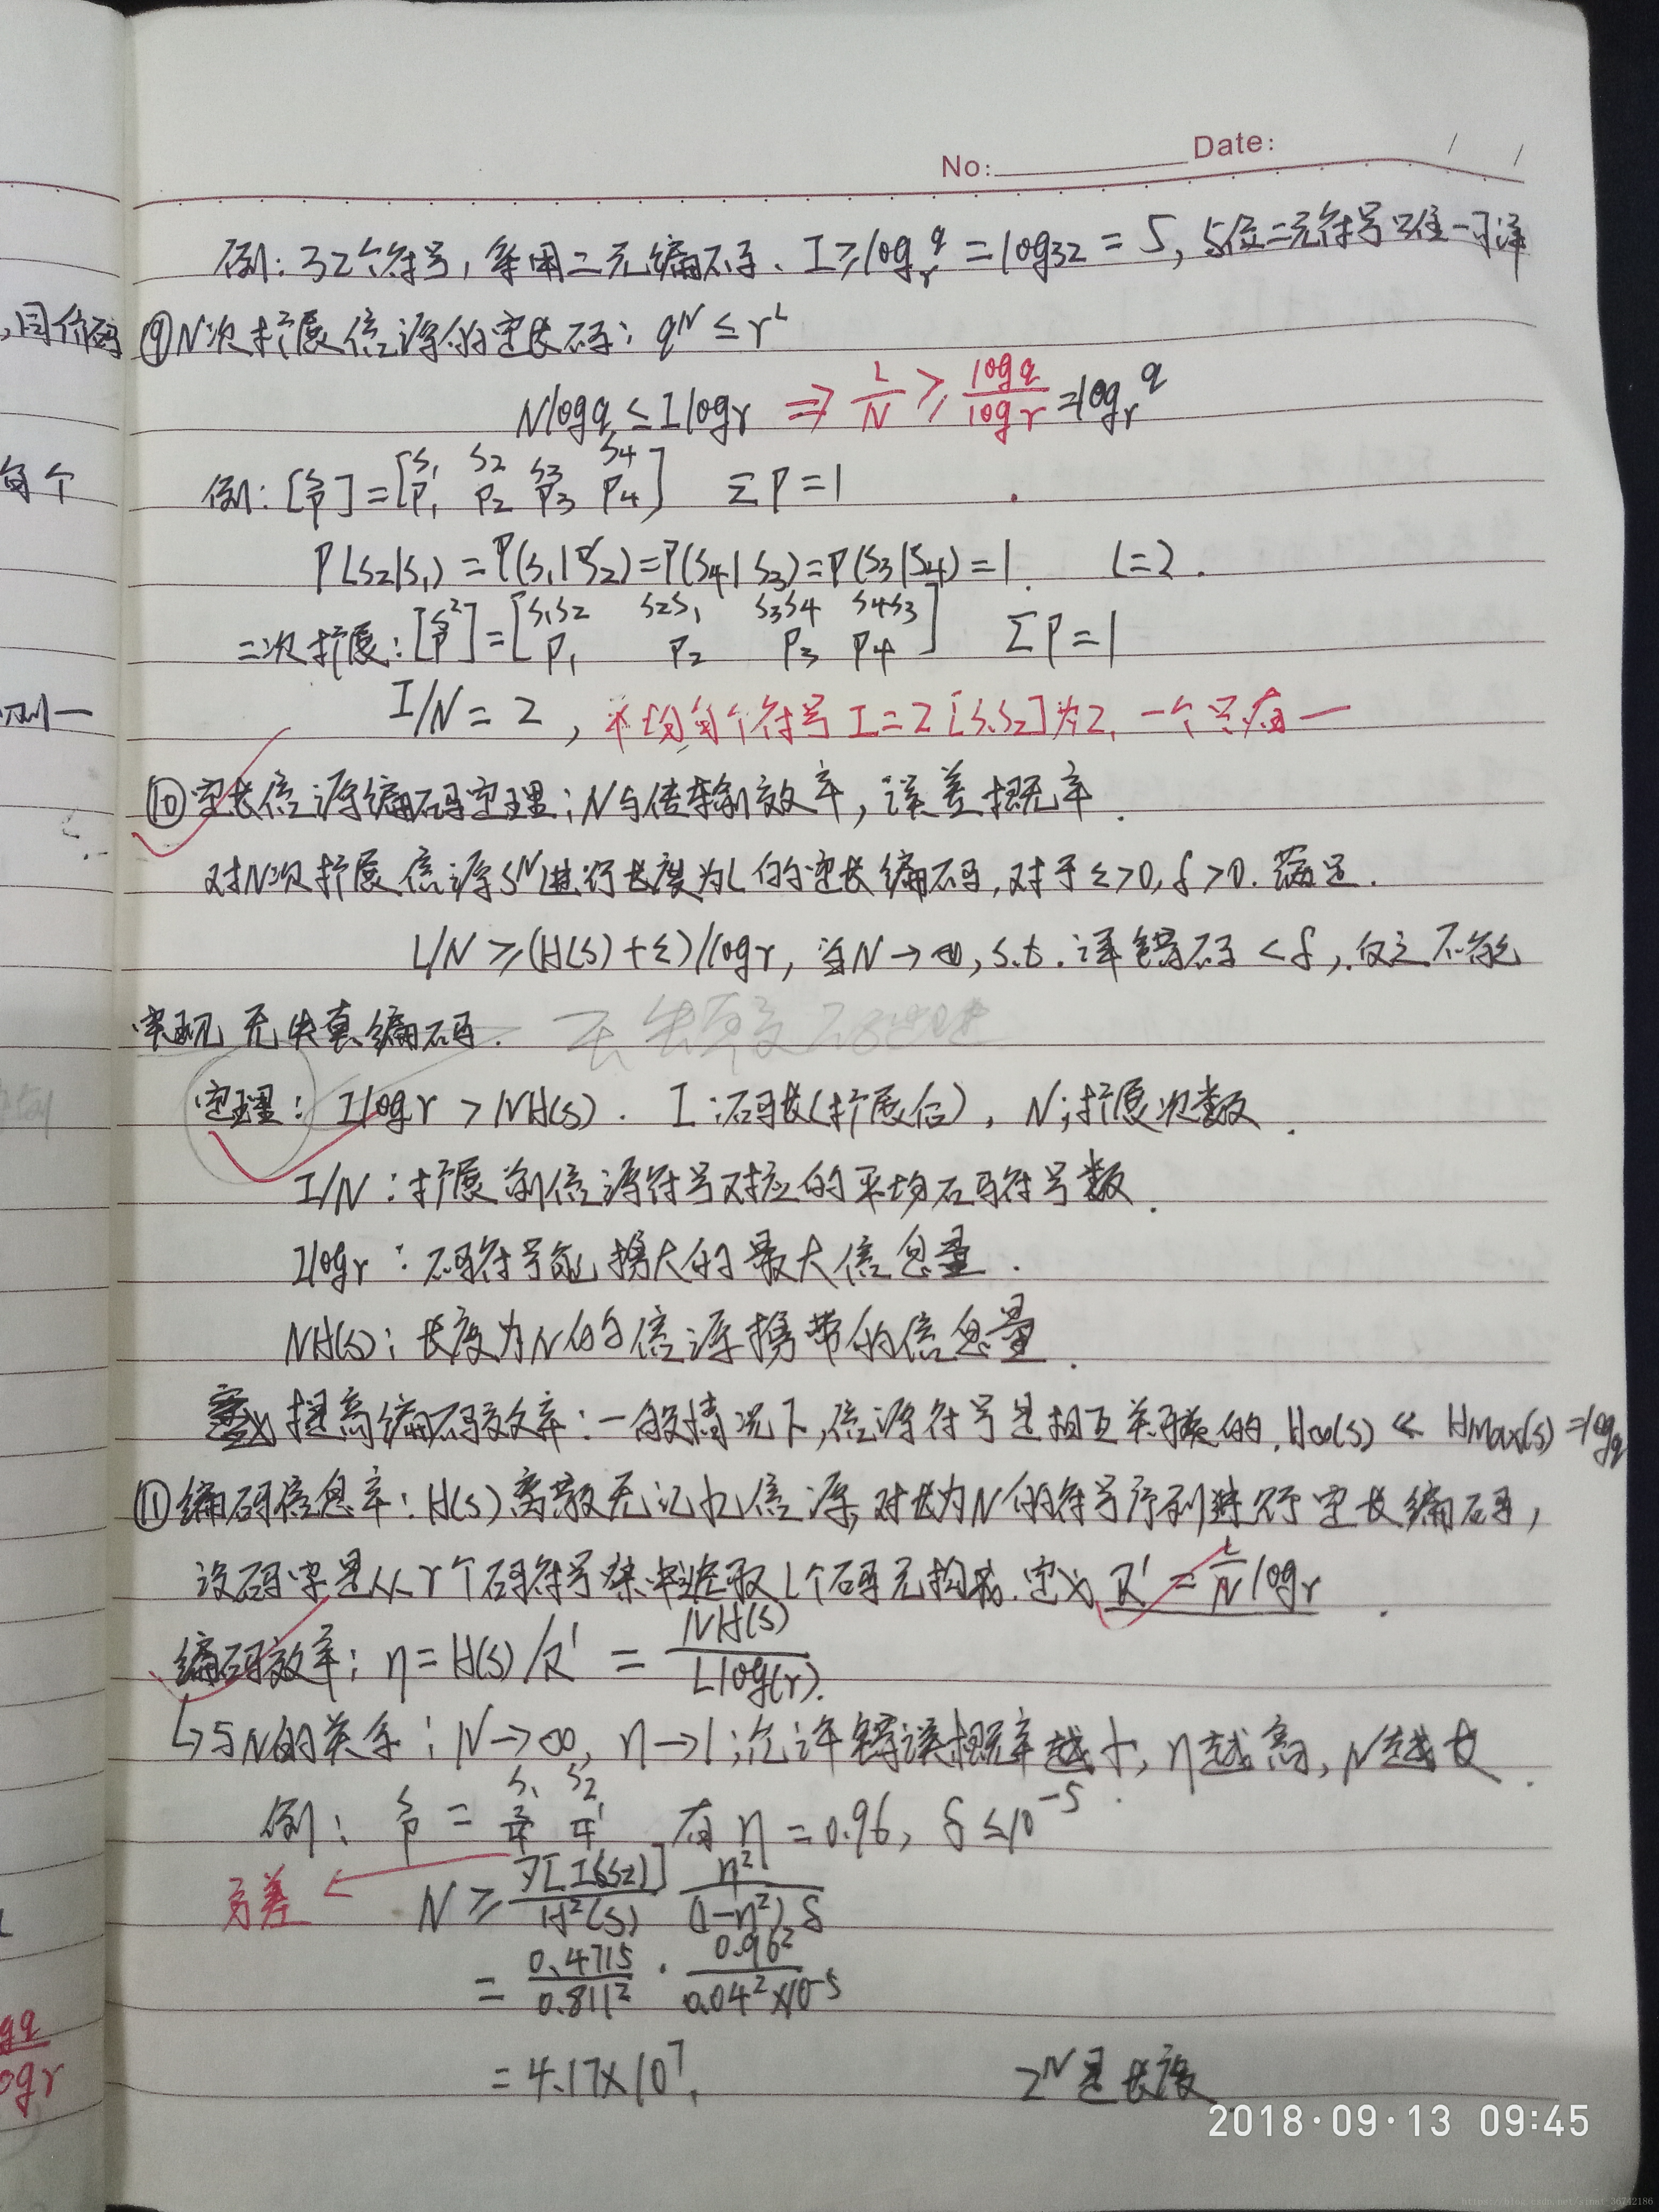 No: Date: / /
例: 32个符号, 采用二元编码. I≥log_r^q = log32 = 5, 5位二元符号唯一可译
,同价码
⑨N次扩展信源的定长码: q^N ≤ r^L
Nlogq ≤ Ilogr ⇒ L/N ≥ logq/logr = log_r^q
每个
例: [S P] = [S1 S2 S3 S4 P1 P2 P3 P4] ΣP=1
P(S2|S1) = P(S1|S2) = P(S4|S3) = P(S3|S4) = 1. L=2.
二次扩展: [S² P] = [S1S2 S2S1 S3S4 S4S3 P1 P2 P3 P4] ΣP=1
I/N = 2, 平均每个符号I=2 [S1S2]为2, 一个只有一
⑩定长信源编码定理: N与传输效率, 误差概率.
对N次扩展信源S^N进行长度为L的定长编码, 对于ε>0, δ>0. 满足.
L/N ≥ (H(S)+ε)/logr, 当N→∞, s.t. 译错码<δ, 反之不能
实现无失真编码.
定理: Ilogr > NH(S). I:码长(扩展后), N:扩展次数.
I/N: 扩展前信源符号对应的平均码符号数.
Ilogr: 码符号能携大的最大信息量.
NH(S): 长度为N的信源携带的信息量.
提高编码效率: 一般情况下, 信源符号是相互关联的, H∞(S) << Hmax(S) = logq
⑪编码信息率: H(S)离散无记忆信源, 对长为N的符号序列进行定长编码,
设码字是从r个码符号集中选取L个码元构成. 定义 R' = L/N logr.
编码效率: η = H(S)/R' = NH(S)/Llog(r).
↳与N的关系: N→∞, η→1; 允许错误概率越小, η越高, N越大.
例: S P = S1 S2 3/4 1/4 有 η=0.96, δ≤10^-5.
方差 ← N ≥ D[I(Si)]/H²(S) η²/(1-η²)δ
= 0.4715/0.811² · 0.96²/0.04²×10^-5
gq
ogr
= 4.17×10^7. 2^N是长度.
2018·09·13 09:45